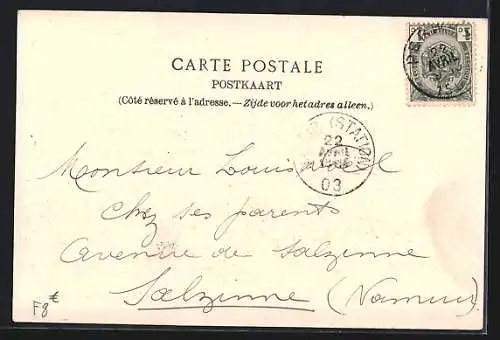 CARTE POSTALE
POSTKAART
(Côté réservé à l'adresse. — Zijde voor het adres alleen.)
(STATION)
22
AVRIL
03
22
AVRIL
Monsieur Louis
Chez ses parents
Avenue de Salzinne
Salzinne (Namur)
F8 €